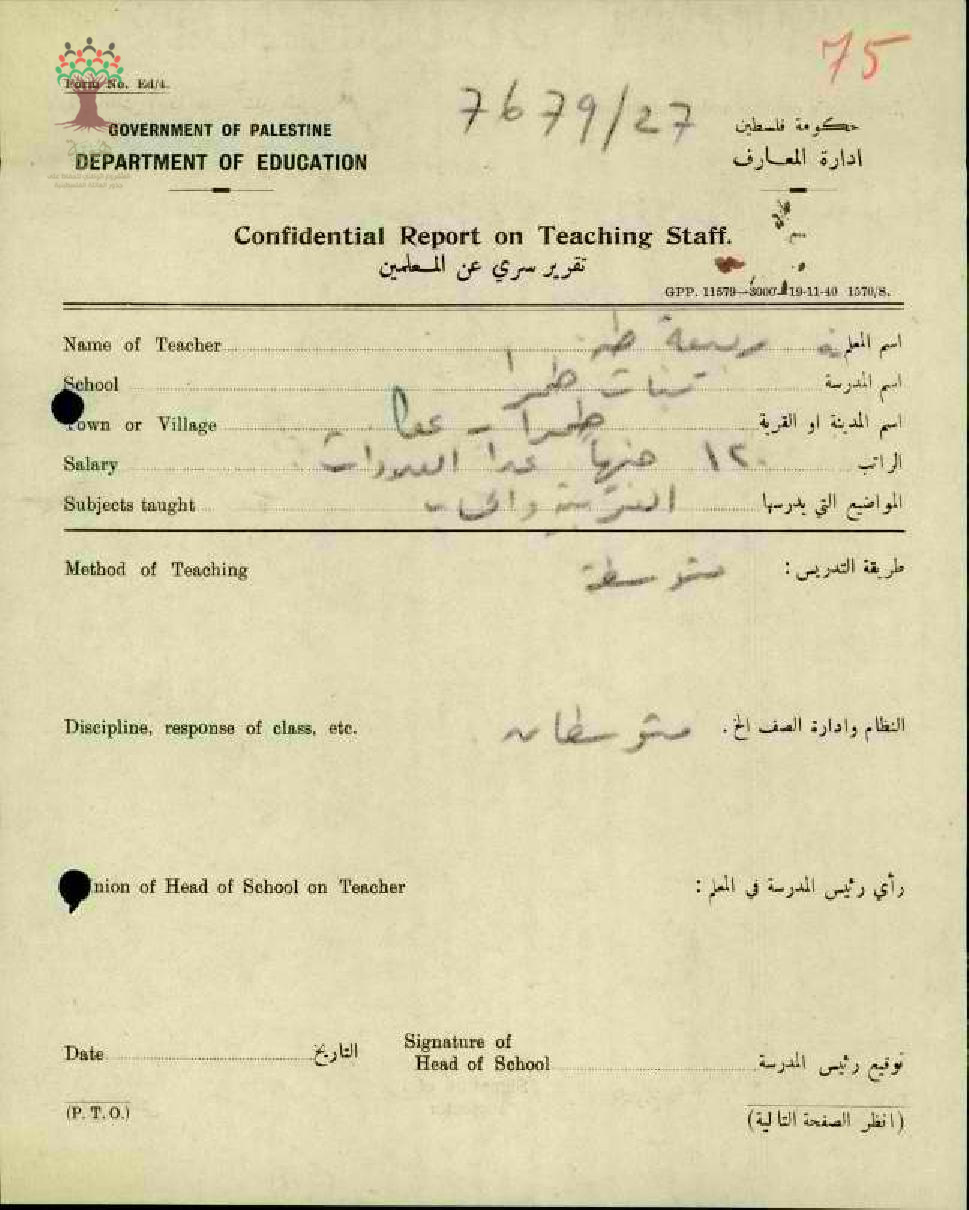 75
Form No. Ed/4.
7679/27
GOVERNMENT OF PALESTINE
حكومة فلسطين
DEPARTMENT OF EDUCATION
ادارة المعارف
Confidential Report on Teaching Staff.
تقرير سري عن المعلمين
GPP. 11579—3000—19-11-40 1570/S.
Name of Teacher ربيعة طه اسم المعلمة
School بنات طمرا اسم المدرسة
Town or Village طمرا - عكا اسم المدينة او القرية
Salary ١٢٠ جنيها عدا العلاوات الراتب
Subjects taught العربية والحساب المواضيع التي يدرسها
Method of Teaching متوسطة طريقة التدريس :
Discipline, response of class, etc. متوسطان النظام وادارة الصف الخ .
nion of Head of School on Teacher رأي رئيس المدرسة في المعلم :
Date التاريخ Signature of
Head of School توقيع رئيس المدرسة
(P. T. O.) (انظر الصفحة التالية)